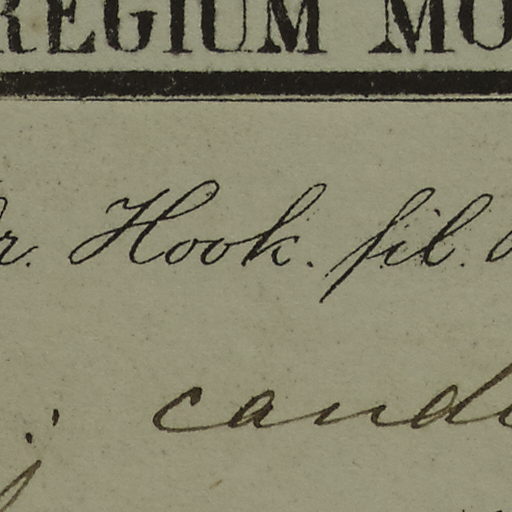 REGIUM MO
r. Hook. fil.
j cand